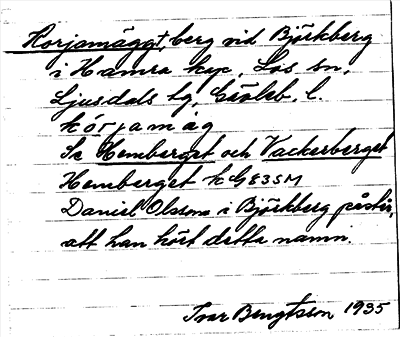 Korjamäggt, berg vid Björkberg
i Hamra kyr., Los sn,
Ljusdals tg, Gävleb. l.
kórjamäg
Se Hemberget och Vackerberget
Hemberget k GE35M
Daniel Olsson i Björkberg påstår,
att han hört detta namn.
Ivar Bengtsson 1935